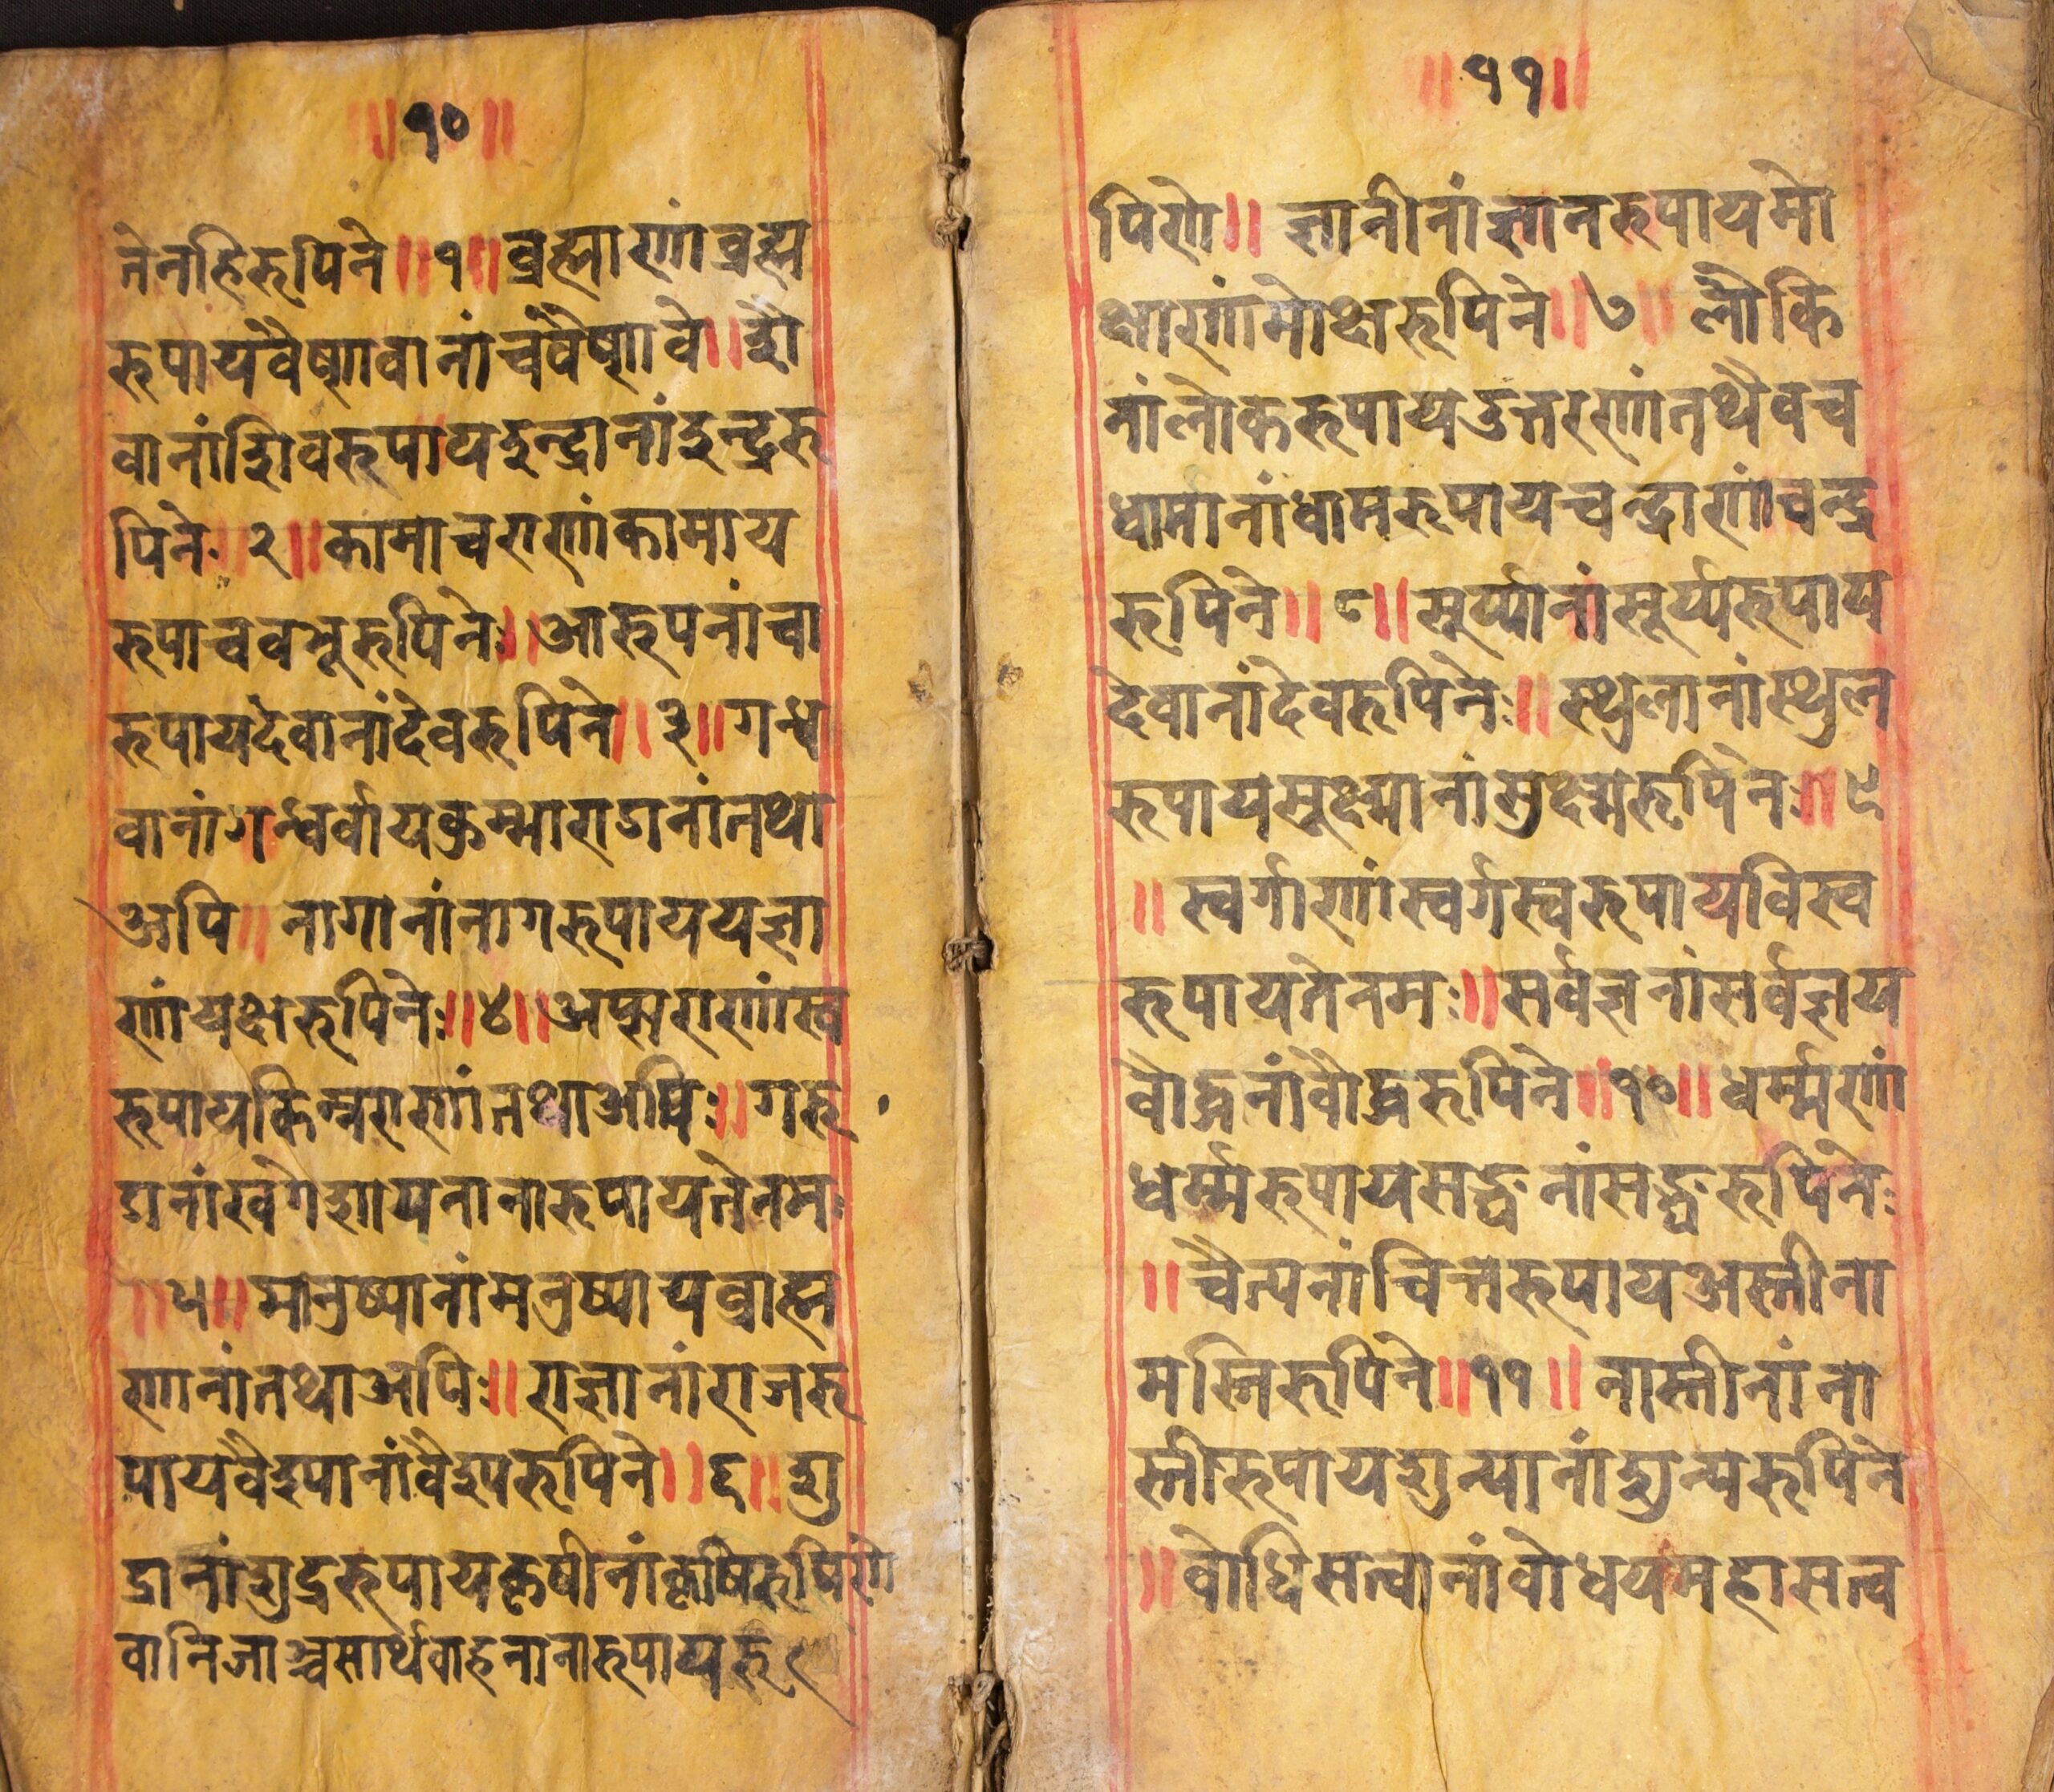 ॥१०॥
तेनहिरूपिने॥१॥ब्रह्माणांब्रह्म
रूपायवैष्णवानांचवैष्णवे॥शै
वानांशिवरूपायइन्द्रानांइन्द्ररू
पिने२॥कामाचराणांकामाय
रूपाचवमूरूपिने॥आरूपनांचा
रूपायदेवानांदेवरूपिने॥३॥गन्ध
वानांगन्धर्वायकुम्भाराडानांतथा
अपि॥नागानांनागरूपाययज्ञा
णांयक्षरूपिने॥४॥अप्सराणांस्व
रूपायकिम्नराणांतथाअपि॥गरू
डानांखगेशायनानारूपायतेनमः
॥५॥मानुष्यानांमनुष्यायब्राह्म
णानांतथाअपि॥राज्ञानांराजरू
पायवैश्यानांवैश्यरूपिने॥६॥शु
द्रानांशुद्ररूपायकृषीनांकृषिरूपिणे
वानिजाञ्चसार्थवाहनानारूपायरू
॥११॥
पिणे॥ज्ञानीनांज्ञानरूपायमो
क्षाणांमोक्षरूपिने॥७॥लौकि
नांलोकरूपायउत्तरणांतथैवच
धामानांधामरूपायचन्द्राणांचन्द्र
रूपिने॥८॥सूर्य्यानांसूर्य्यरूपाय
देवानांदेवरूपिने॥स्थुलानांस्थुल
रूपायसूक्ष्मानांसुक्ष्मरूपिने॥९
॥स्वर्गाणांस्वर्गस्वरूपायविस्व
रूपायतेनमः॥सर्वज्ञनांसर्वज्ञय
बौद्धनांबौद्धरूपिने॥१०॥धर्म्मणां
धर्म्मरूपायसङ्घनांसङ्घरूपिनेः
॥चैत्यनांचित्तरूपायअस्तीना
मस्तिरूपिने॥११॥नास्तीनांना
स्तीरूपायशुन्यानांशुन्यरूपिने
॥बोधिसत्वानांबोधयमहासत्व